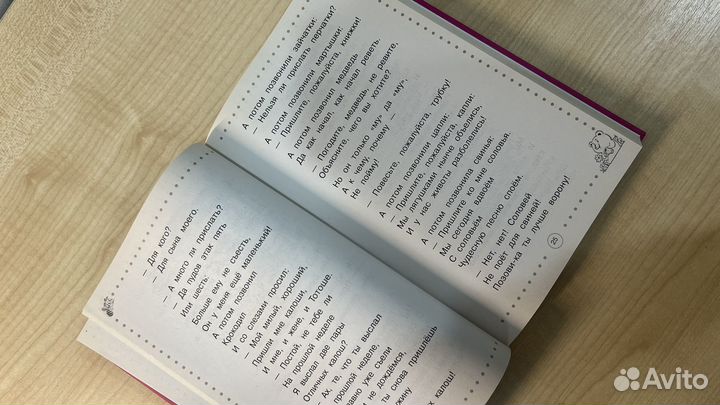 — Для кого?
— Для сына моего.
— А много ли прислать?
— Да пудов этак пять
Или шесть:
Больше ему не съесть,
Он у меня ещё маленький!
А потом позвонил
Крокодил
И со слезами просил:
— Мой милый, хороший,
Пришли мне калоши,
И мне, и жене, и Тотоше.
— Постой, не тебе ли
На прошлой неделе
Я выслал две пары
Отличных калош?
— Ах, те, что ты выслал
прошлой неделе,
уже съели
не дождёмся,
ты снова пришлёшь
калош!
А потом позвонили зайчатки:
— Нельзя ли прислать перчатки?
А потом позвонили мартышки:
— Пришлите, пожалуйста, книжки!
А потом позвонил медведь
Да как начал, как начал реветь.
— Погодите, медведь, не ревите,
Объясните, чего вы хотите?
Но он только «му» да «му»,
А к чему, почему —
Не пойму!
— Повесьте, пожалуйста, трубку!
А потом позвонили цапли:
— Пришлите, пожалуйста, капли:
Мы лягушками нынче объелись,
И у нас животы разболелись!
А потом позвонила свинья:
— Пришлите ко мне соловья.
Мы сегодня вдвоём
С соловьём
Чудесную песню споём.
— Нет, нет! Соловей
Не поёт для свиней!
Позови-ка ты лучше ворону!
25
Avito